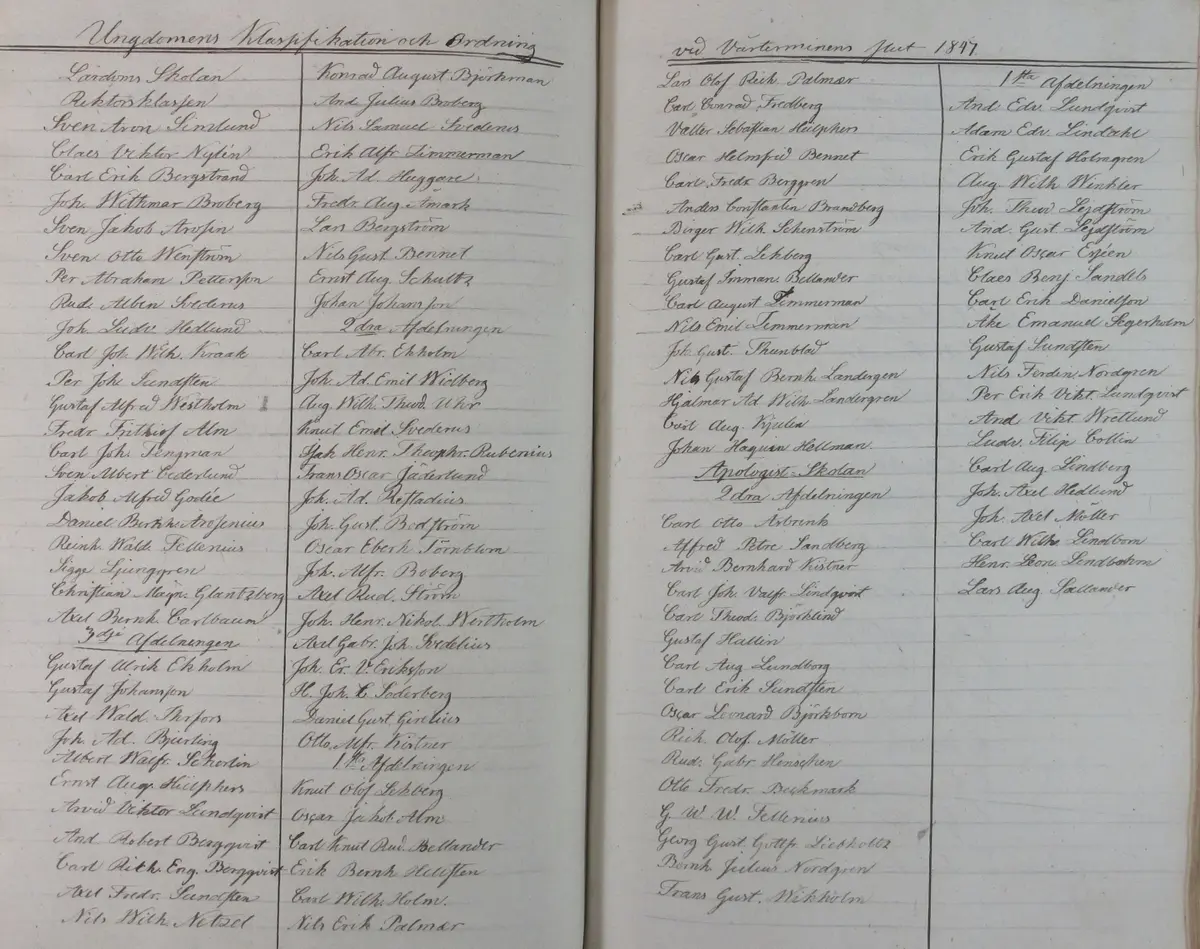 Ungdomens Klassifikation och Ordning
Lärdoms Skolan
Rektorsklassen
Sven Aron Simlund
Claes Viktor Nylén
Carl Erik Bergstrand
Joh. Withmar Broberg
Sven Jakob Arosin
Sven Otto Wenström
Per Abraham Pettersson
Rud. Alben Svederus
Joh. Ludv. Hedlund
Carl Joh. Wilh. Kraak
Per Joh. Sundsten
Gustaf Alfred Westholm
Fredr. Frithiof Alm
Carl Joh. Tengman
Sven Albert Cederlund
Jakob Alfred Godée
Daniel Bernh. Arosenius
Reinh. Wald. Fellenius
Sigge Ljunggren
Christian Magn. Glantzberg
Axel Bernh. Carlbaum
3dje Afdelningen
Gustaf Ulrik Ekholm
Gustaf Johansson
Axel Wald. Thofors
Joh. Ad. Bjurling
Albert Walfr. Schortin
Ernst Aug. Hülphers
Arvid Viktor Lundqvist
And. Robert Bergqvist
Carl Rich. Eng. Bergqvist
Axel Fredr. Sundsten
Nils Wilh. Netzel
Konrad August Björkman
And. Julius Broberg
Nils Samuel Svederus
Erik Alfr. Timmerman
Joh. Ad. Huggare
Fredr. Aug. Åmark
Lars Bergström
Nils Gust. Bennet
Ernst Aug. Schultz
Johan Johansson
2dra Afdelningen
Carl Abr. Ekholm
Joh. Ad. Emil Widberg
Aug. Wilh. Theod. Uhr
Knut Emil Svederus
Isak Henr. Theophr. Rubenius
Frans Oscar Jäderlund
Joh. Ad. Restadius
Joh. Gust. Bodström
Oscar Eberh. Törnblom
Joh. Alfr. Boberg
Axel Rud. Ström
Joh. Henr. Nikol. Westholm
Axel Gabr. Joh. Svedelius
Joh. Er. V. Eriksson
H. Joh. L. Söderberg
Daniel Gust. Girelius
Otto Alfr. Kistner
1sta Afdelningen
Knut Olof Lehberg
Oscar Jakob Alm
Carl Knut Rud. Bellander
Erik Bernh. Hellsten
Carl Wilh. Holm.
Nils Erik Palmær
vid Vårterminens slut 1847.
Lars Olof Rich. Palmær
Carl Conrad Fredberg
Valter Sebastian Hülphers
Oscar Helmfrid Bennet
Carl Fredr. Berggren
Anders Constantin Brandberg
Birger Wilh. Schenström
Carl Gust. Lehberg
Gustaf Imman. Bellander
Carl August Timmerman
Nils Emil Timmerman
Joh. Gust. Thunblad
Nils Gustaf Bernh. Landergen
Hjalmar Ad. Wilh. Landergren
Emil Aug. Kjulin
Johan Haquin Hellman.
Apologist-Skolan
2dra Afdelningen
Carl Otto Asbrink
Alfred Petre Sandberg
Arvid Bernhard Kistner
Carl Joh. Valfr. Lindqvist
Carl Theod. Björklind
Gustaf Hallin
Carl Aug. Lundborg
Carl Erik Sundsten
Oscar Leonard Björkbom
Rich. Olof Möller
Rud. Gabr. Henschen
Otto Fredr. Beckmark
G. W. W. Fellenius
Georg Gust. Gottfr. Liebholtz
Bernh. Julius Nordgren
Frans Gust. Wikholm
1sta Afdelningen
And. Edv. Lundqvist
Adam Edv. Lindahl
Erik Gustaf Holmgren
Aug. Wilh. Winkler
Joh. Theod. Lejdström
And. Gust. Lejdström
Knut Oscar Enéen
Claes Benj. Sandels
Carl Erik Danielson
Åke Emanuel Segerholm
Gustaf Sundsten
Nils Ferdin. Nordgren
Per Erik Vikt. Lundqvist
And. Vikt. Wretlund
Ludv. Filip Collin
Carl Aug. Lindberg
Joh. Axel Hedlund
Joh. Axel Möller
Carl Wilh. Lindbom
Henr. Leon. Lindbohm
Lars Aug. Sællander